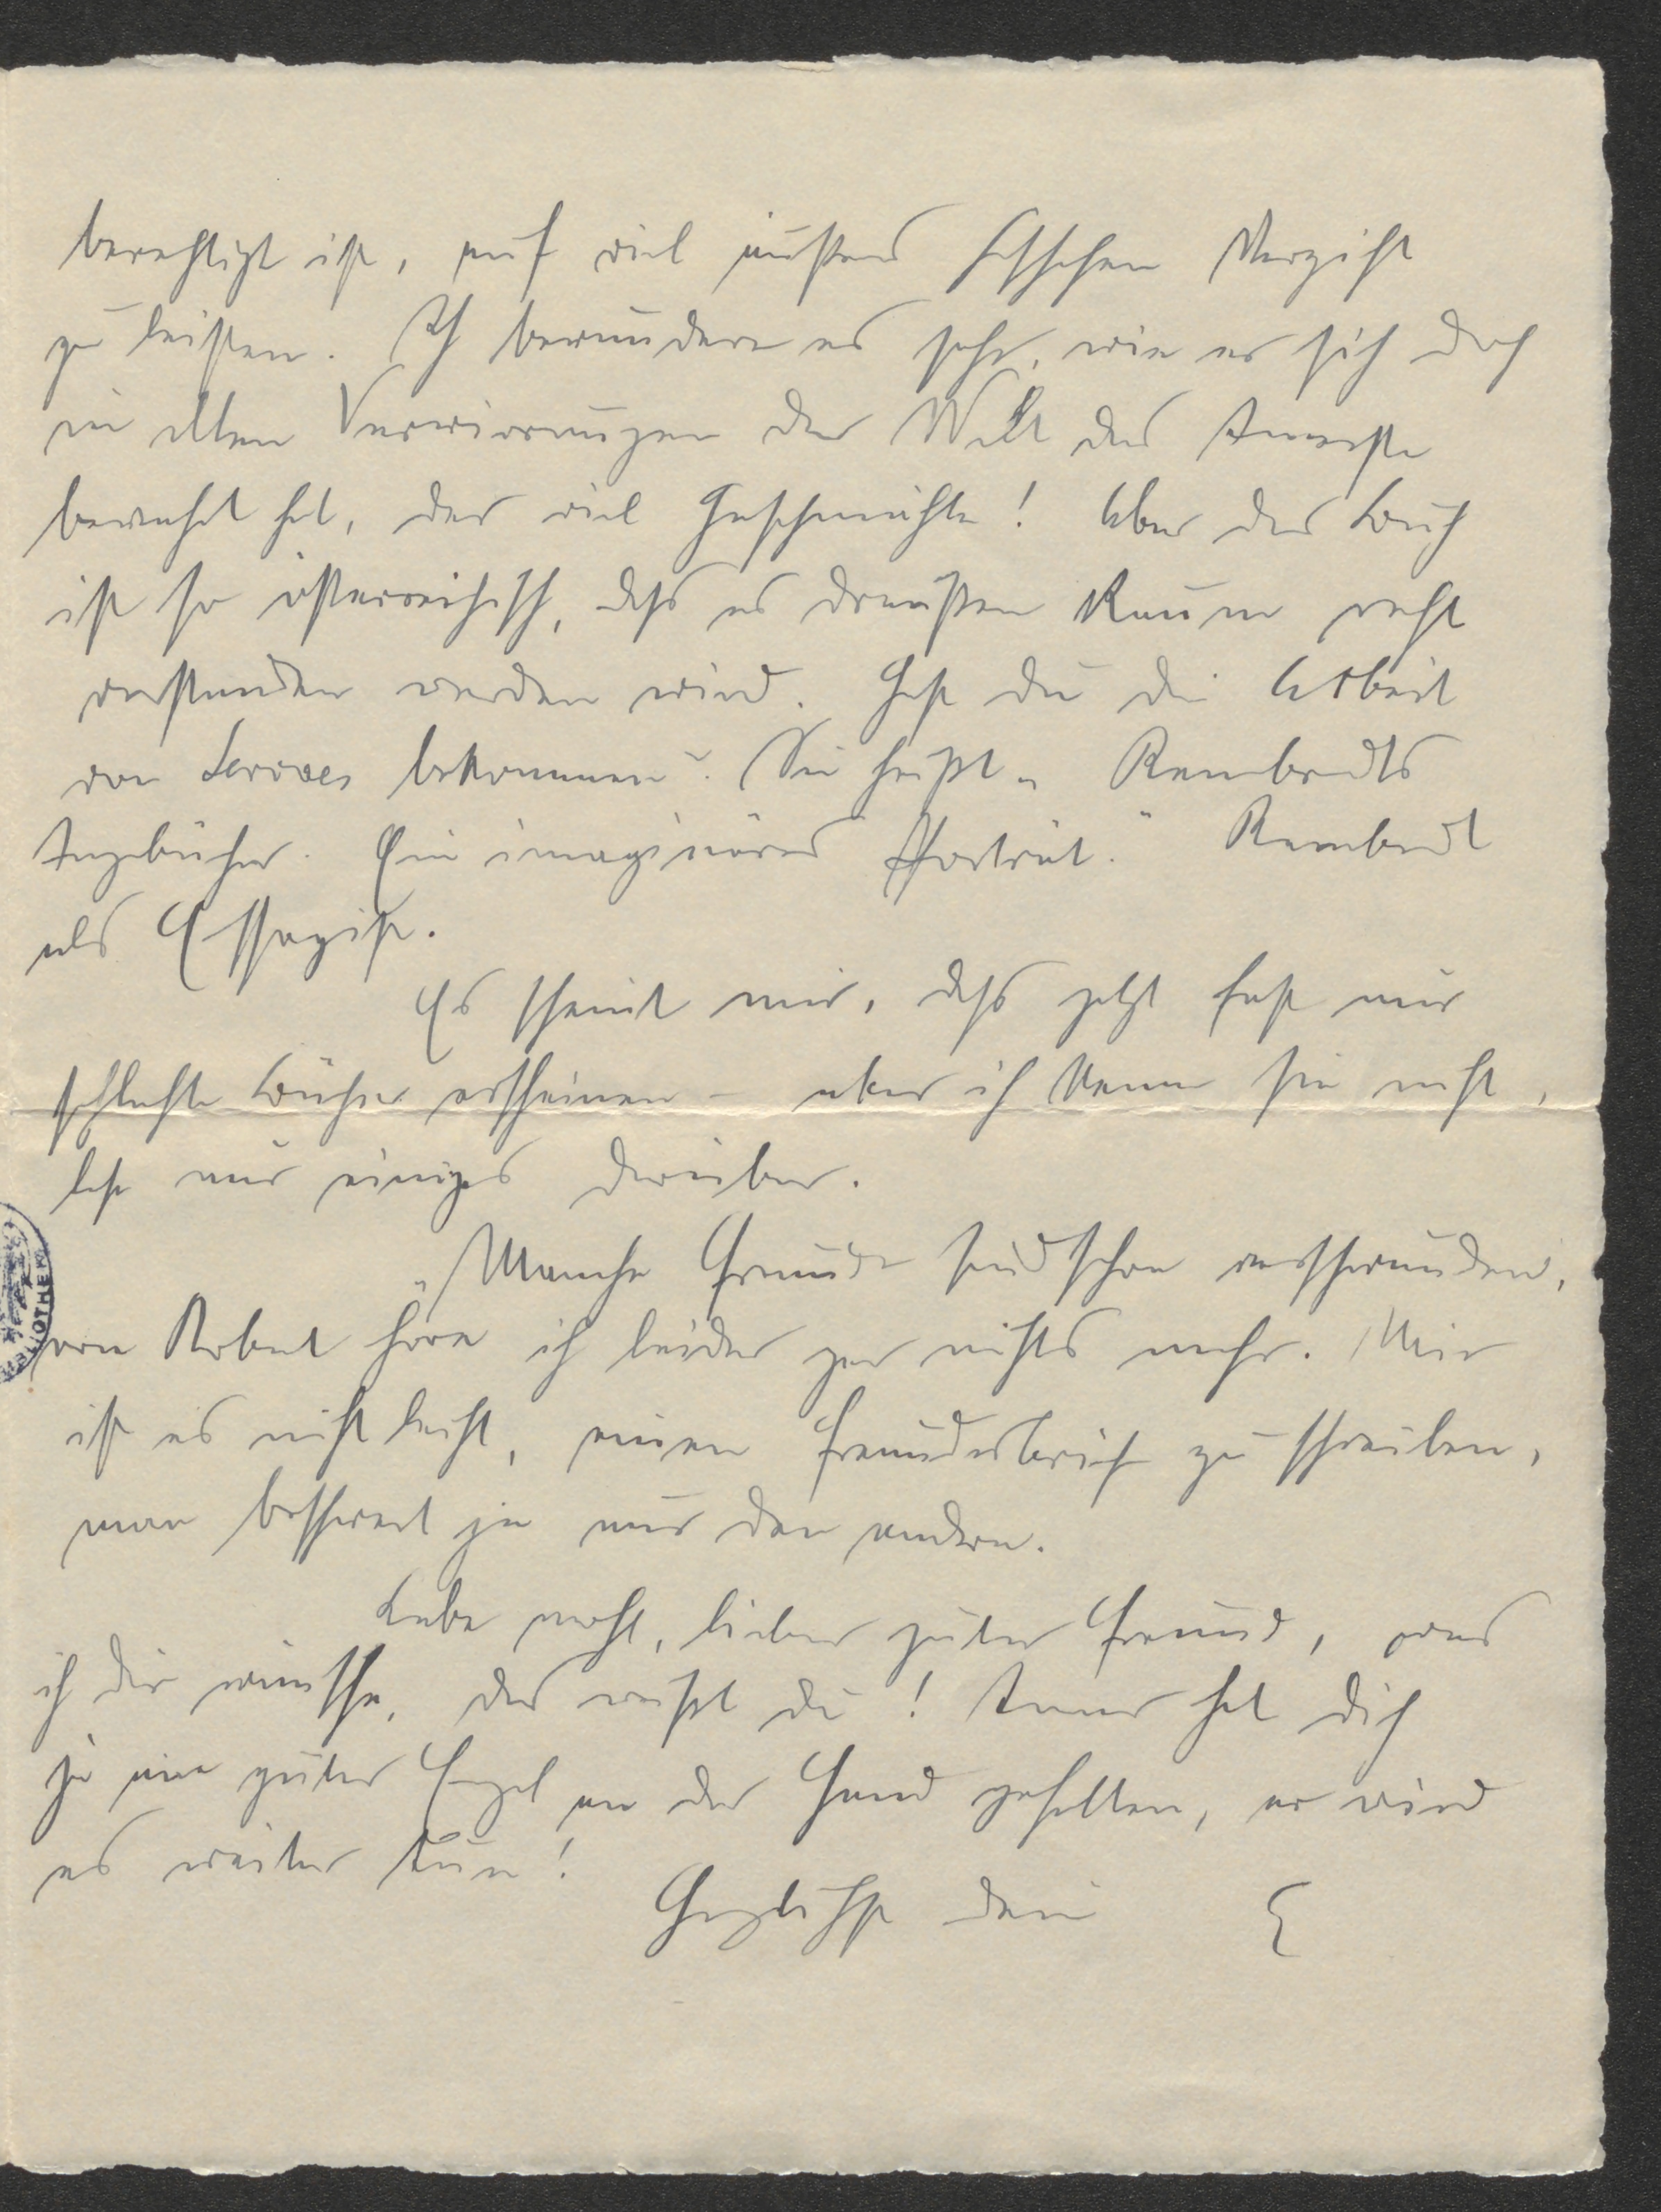 berechtigt ist, auf viel äußeres Geschehen Verzicht
zu leisten. Ich bewundere es sehr, wie er sich doch
in allen Verwirrungen der Welt das Innerste
bewahrt hat, der viel Geschmähte! Aber das Buch
ist so österreichisch, dass es draußen kaum recht
verstanden werden wird. Hast du die Arbeit
von Servaes bekommen? Sie heißt „Rembrandts
Tagebücher. Ein imaginäres Porträt." Rembrandt
als Essayist.
Es scheint mir, dass jetzt fast nur
schlechte Bücher erscheinen – aber ich kenne sie nicht,
lese nur einiges darüber.
Manche Freunde sind schon verschwunden,
von Robert höre ich leider gar nichts mehr. Mir
ist es nicht leicht, einen Freundesbrief zu schreiben,
man beschwert ja nur den andern.
Lebe wohl, lieber guter Freund, was
ich dir wünsche, das weißt du! Immer hat dich
ja ein guter Engel an der Hand gehalten, er wird
es weiter tun!
Herzlichst dein E
BIBLIOTHEK